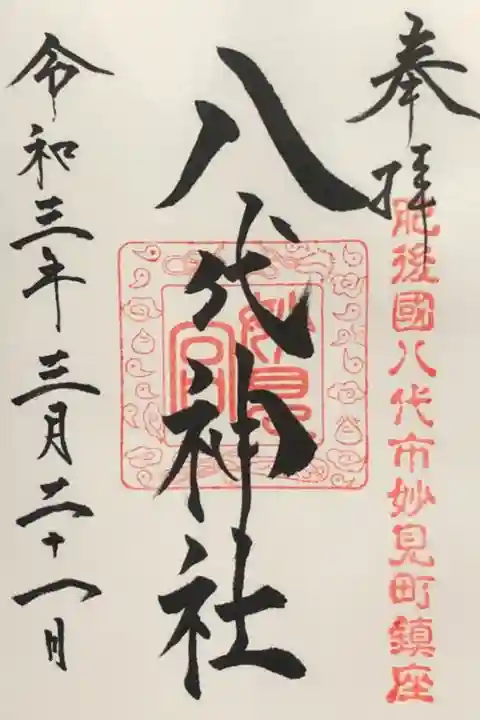 奉拝
肥後國八代市妙見町鎮座
八代神社
妙見宮
令和三年三月二十八日